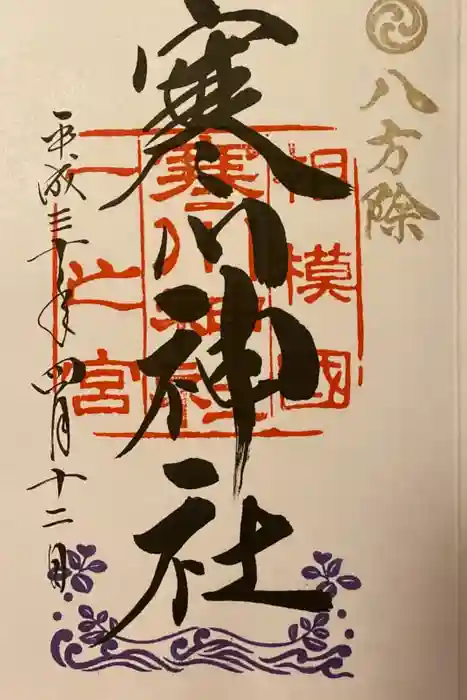 八方除
寒川神社
相模國
寒川神社
一之宮
平成三十年四月十二日